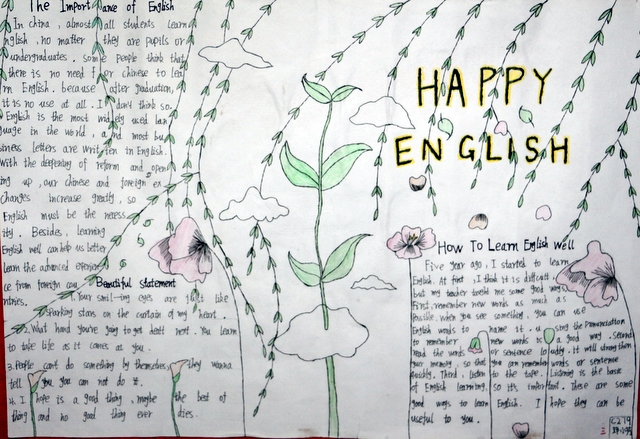 The Importance of English
In china, almost all students learn
nglish, no matter they are pupils or
undergraduates. some people think that
there is no need for chinese to lea
rn English, because after graduation,
it is no use at all. I don't think so.
English is the most widely used lan
guage in the world, and most bu
siness letters are written in English.
With the deepening of reform and open
ing up, our chinese and foreign ex
changes increase greatly, so
English must be the necess
ity. Besides, learning
English well can help us better
learn the advanced experien
ce from foreign cou
ntries.
Beautiful statement
Your smil-ing eyes are just like
sparking stars on the curtain of my heart.
What hand you're going to get dealt next. You learn
to take life as it comes at you.
3. People can't do something by themselves, They wanna
tell you you can not do it.
4. hope is a good thing, maybe the best of
thing and no good thing ever dies.
HAPPY
ENGLISH
How To Learn English well
Five year ago, I started to learn
English. At first, I think it is difficult,
but my teacher taught me some good way
First, remember new words as much as
Possible, when you see something, you can use
English words to name it. using the Pronunciation
to remember new words is a good way. Second
read the words or sentence loudly. it will strong them
your memory, so that you can remember words or sentence
quickly. Third, listen to the tape. Listening is the basic
of English learning, so it's important. These are some
good ways to learn English. I hope they can be
useful to you.